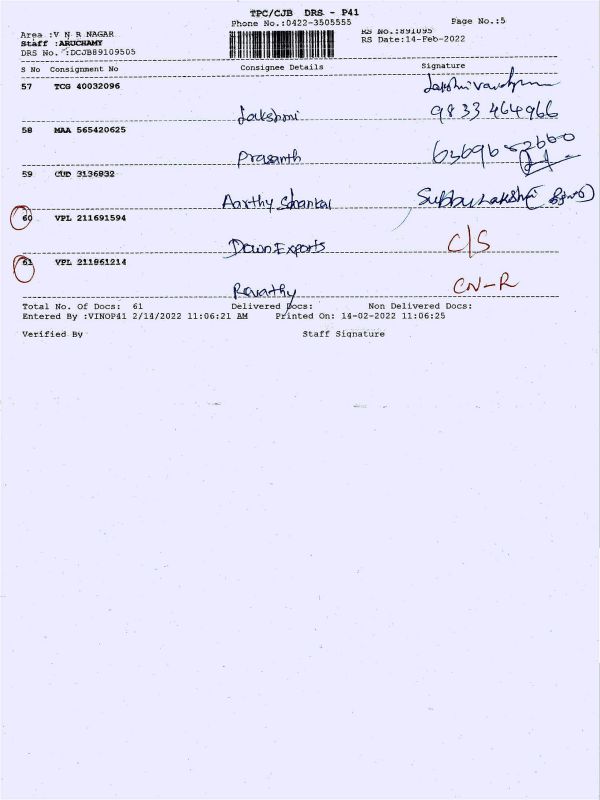 TPC/CJB DRS - P41
Phone No.:0422-3505555
Page No.:5
Area :V N R NAGAR
RS No.:891095
Staff :ARUCHAMY
RS Date:14-Feb-2022
DRS No. :DCJB89109505
S No Consignment No Consignee Details Signature
57 TCG 40032096
Lakshmi 9833 464966
58 MAA 565420625
Prasanth
59 CUD 3136832
Aarthy Shankar Subbulakshmi
60 VPL 211691594
Dawn Exports C/S
61 VPL 211861214
Revathy CN-R
Total No. Of Docs: 61 Delivered Docs: Non Delivered Docs:
Entered By :VINOP41 2/14/2022 11:06:21 AM Printed On: 14-02-2022 11:06:25
Verified By Staff Signature